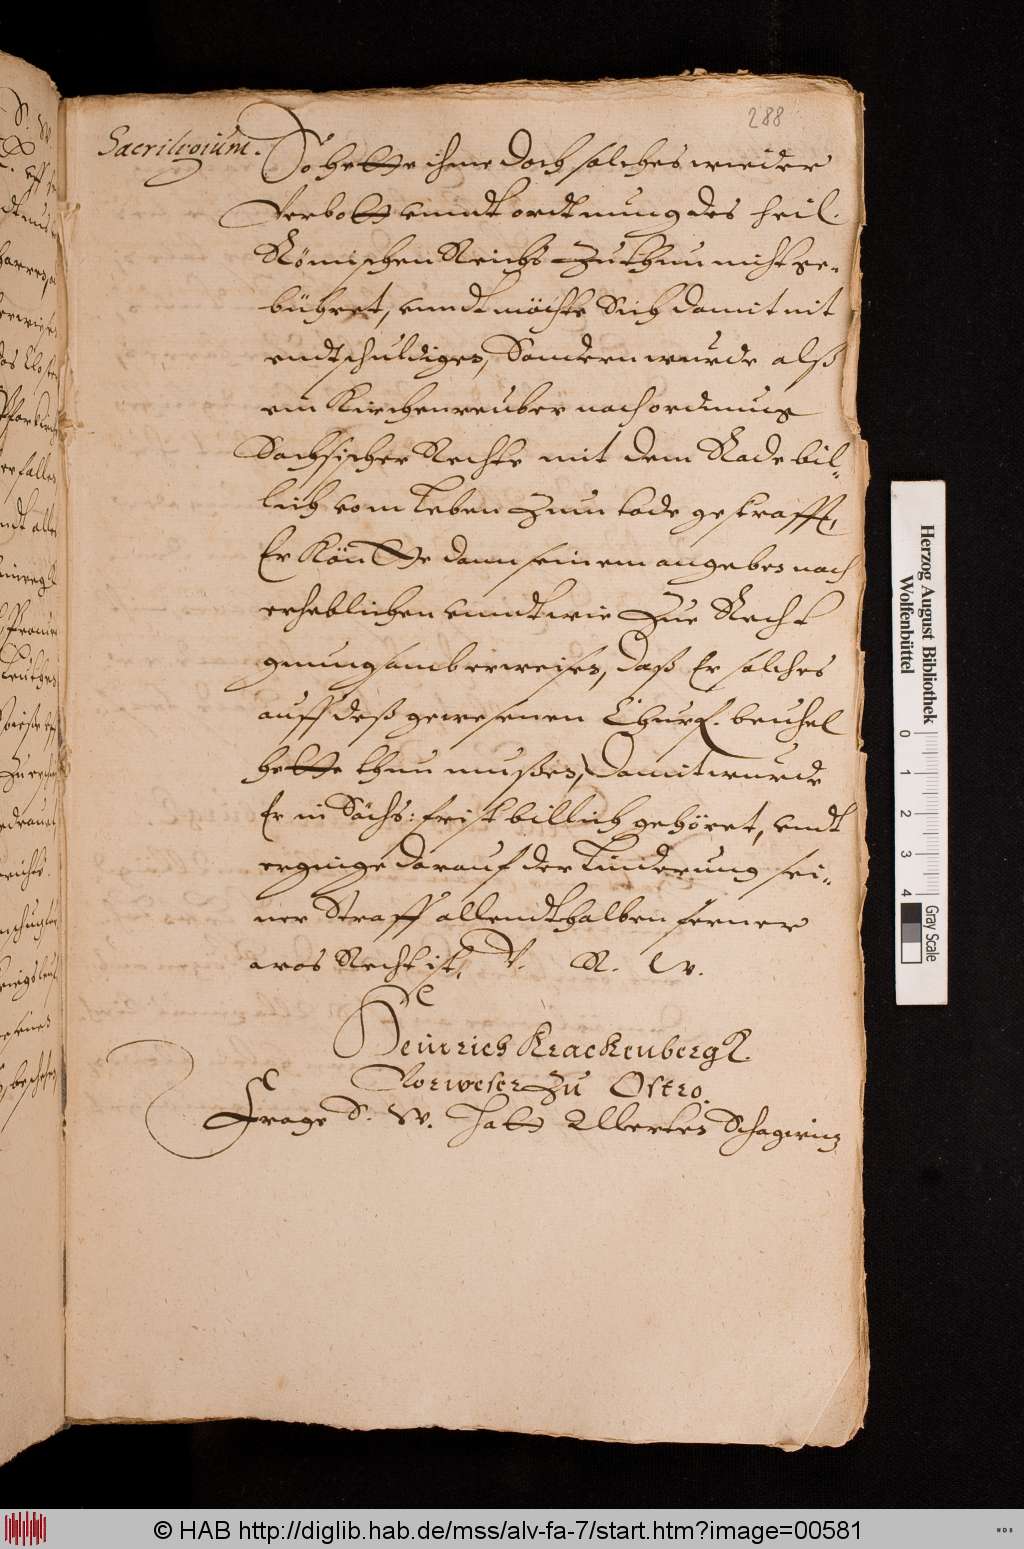 288
Sacrilegium.
So hette ihme doch solches wieder
Verbott vnndt ordtnung des heil.
Römischen Reichs zuthun nicht ge-
bühret, vnndt möchte Sich damit nit
endtschuldigen, Sondern wurde alß
ein Kirchenreuber nach ordnung
Sachsischer Rechte mit dem Rade bil-
lich vom Leben zum tode gestrafft,
Er Köntte dann seinem angeben nach
erheblichen vnndt wie zue Recht
gnungsam beweisen, daß Er solches
auff deß gewesenen Churf. beuhel
hette thun mußen, Damit wurde
Er in Sächs: frist billich gehöret, vndt
erginge darauf der Linderung sei-
ner Straff allendthalben ferner
was Recht ist, V. R. W.
Heinrich Krackenberg
Vorweser zu Ostro.
Frage D. W. Hatt Allerten Schagwin
Herzog August Bibliothek
Wolfenbüttel
0 1 2 3 4
Gray Scale
© HAB http://diglib.hab.de/mss/alv-fa-7/start.htm?image=00581